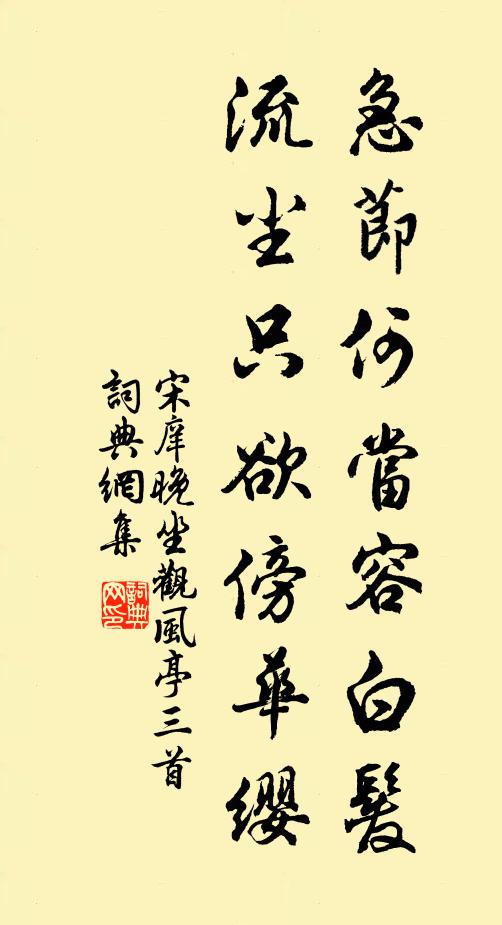 急節何當容白髮
流尘只欲傍華纓
宋庠晚坐觀風亭三首
詞典網集
詞典网印